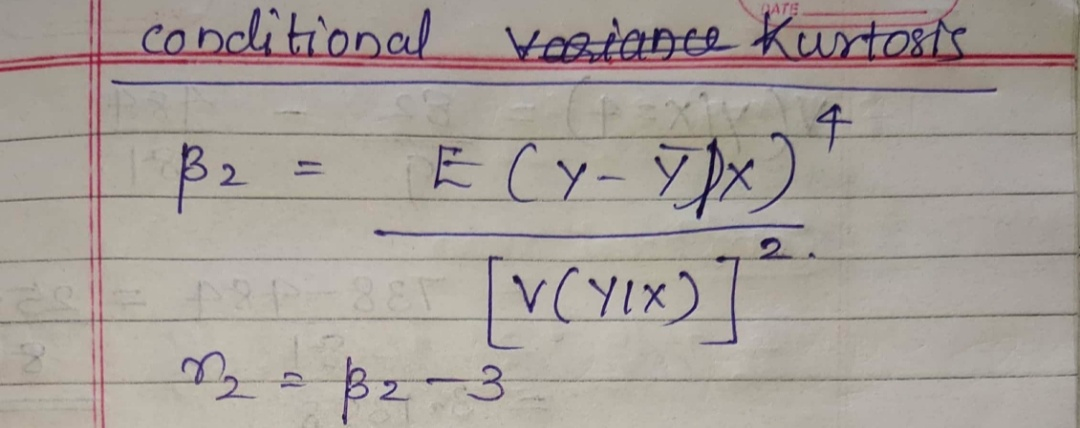 DATE
conditional Variance Kurtosis
β2 = E (Y - Y̅|X)^4
[V(Y|X)]^2.
r2 = β2 - 3